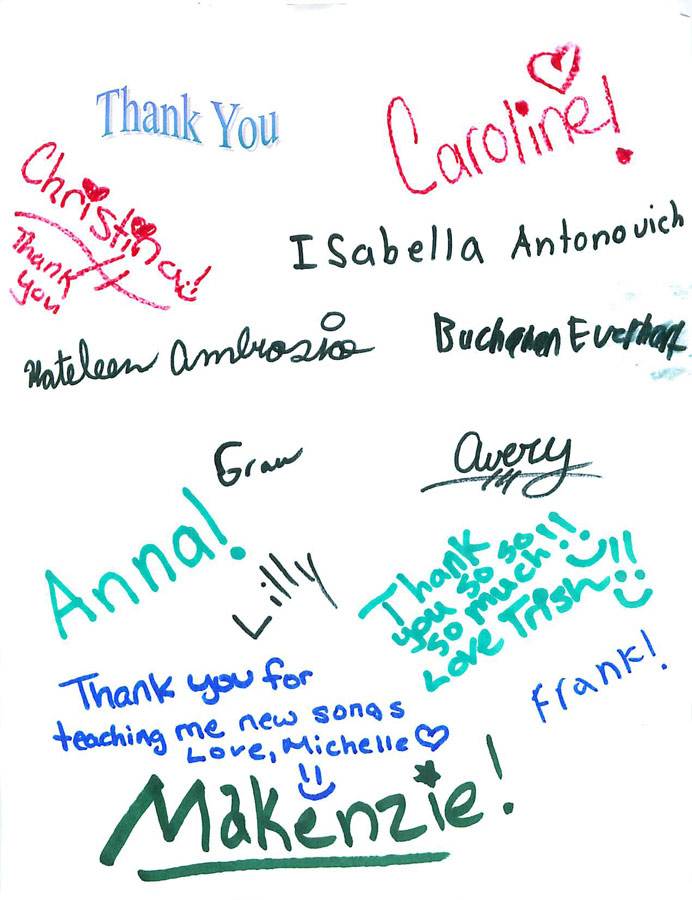 Thank You
Caroline!
Christina!
Thank
you
ISabella Antonovich
Kateleen Ambrosio
Buchanan Everhart
Avery
Anna!
Lilly
Thank
you so so
so much!!
Love Trish!!
Frank!
Thank you for
teaching me new songs
Love, Michelle
Makenzie!